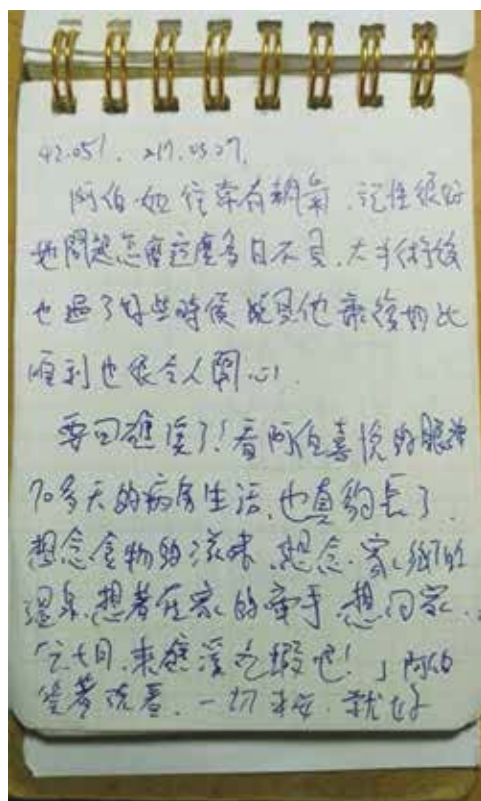 42.051. 217.03.27.
阿伯如往常有朝氣,記性很好
她問起怎麼這麼多日不見,大手術後
也過了好些時候 就見他 恢復的比
順利也很令人開心!
要回礁溪了!看阿伯喜悅的眼神
70多天的病房生活,也真夠長了.
想念食物的滋味,想念家鄉的
溫泉,想著在家的牽手,想回家..
「七月,來礁溪吃蝦吧!」阿伯
笑著說著.一切平安,就好